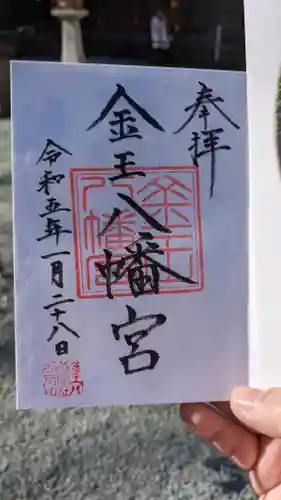 奉拝
金王八幡宮
令和五年一月二十八日
金王八幡宮